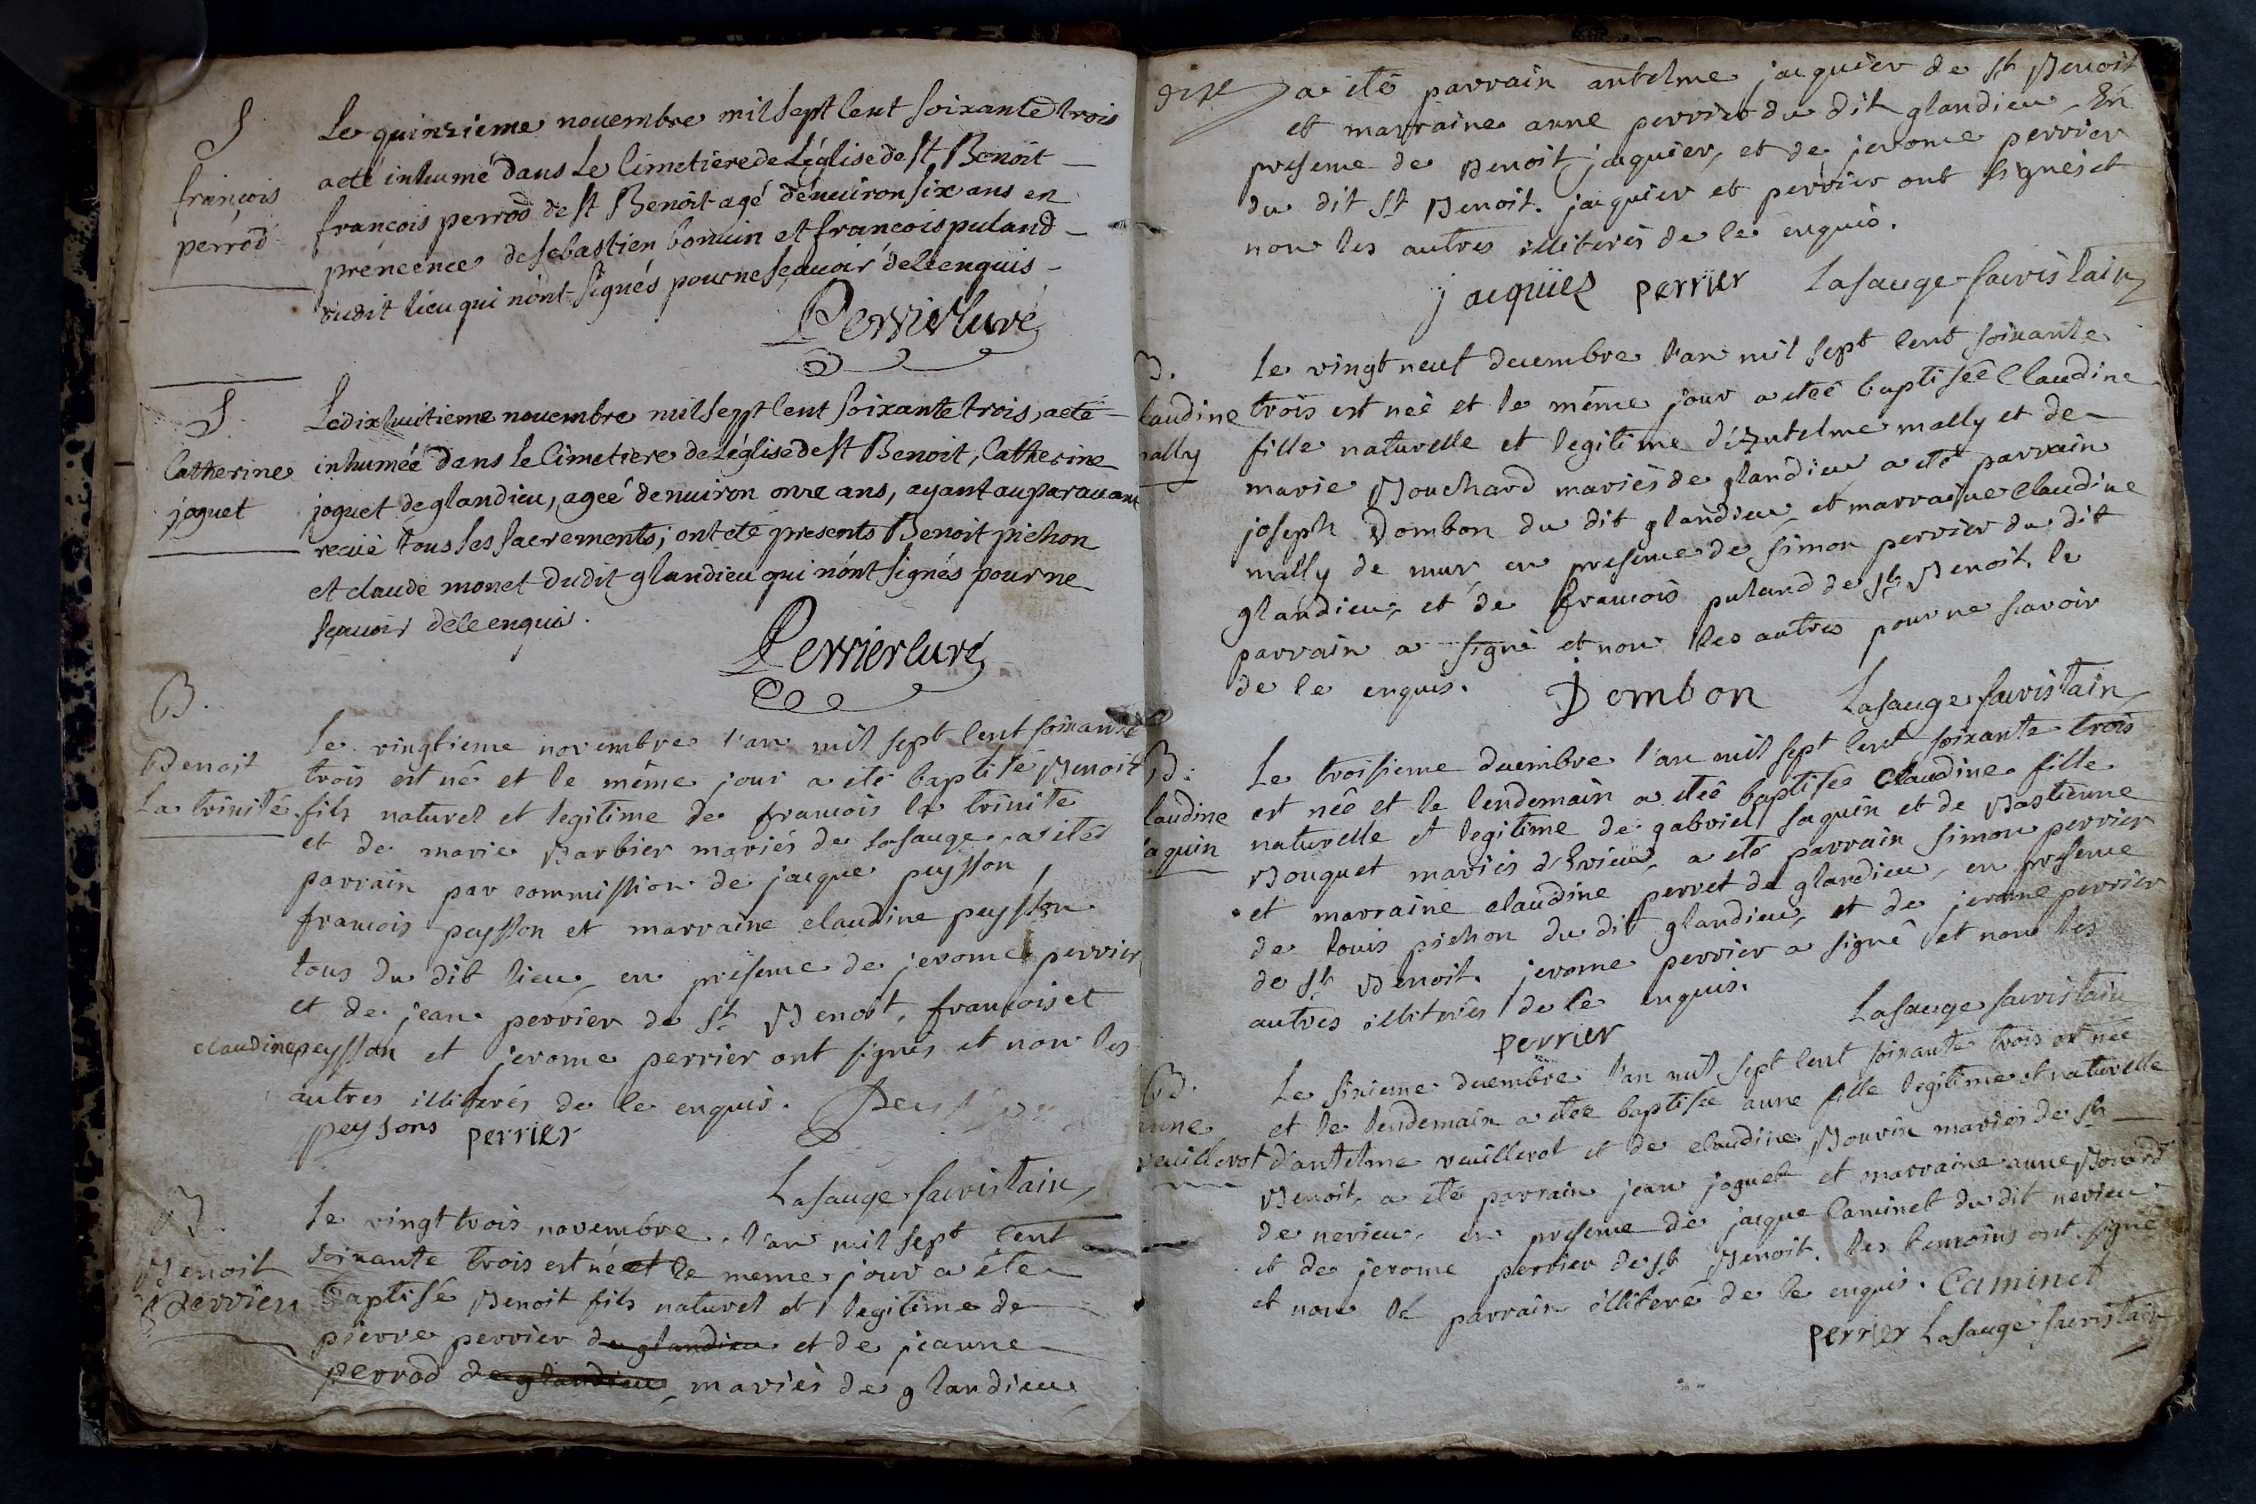 S
françois
perrod
Le quinzieme novembre mil sept Cent soixante trois
a eté inhumé dans Le Cimetiere de L'église de St Benoit
françois perrod de St Benoit agé d'environ six ans en
prencence de sebastien bonvin et françois puland
dudit lieu qui n'ont signés pour ne sçavoir de le enquis
Perrier Curé
S
Catherine
joguet
Le dix huitieme novembre mil sept Cent soixante trois, a eté
inhumée dans le Cimetiere de L'église de St Benoit, Catherine
joguet de glandieu, ageé d'environ onze ans, ayant auparavant
reçüe tous les sacrements; ont eté presents Benoit pichon
et claude monet dudit glandieu qui n'ont signés pour ne
sçavoir de le enquis.
Perrier curé
B.
Benoit
La trinité
le vingtieme novembre l'an mil sept cent soixante
trois est né et le même jour a eté baptisé Benoit
fils naturel et legitime de francois la trinité
et de marie Barbier mariés de lasauge. a etés
parrain par commission de jacque peysson
francois peysson et marraine claudine peysson
tous du dit lieu en présence de jerome perrier
et de jean perrier de St Benoit, francois et
claudine peysson et jerome perrier ont signés et non les
autres illiterés de le enquis.
peysons perrier
Lasauge sacristain
B.
Benoit
perrier
le vingt trois novembre l'an mil sept cent
soixante trois est né et le meme jour a éte
baptisé Benoit fils naturel et legitime de
pierre perrier de glandieu et de jeanne
perrod de glandieu mariés de glandieu
a eté parrain antelme jacquier de St Benoit
et marraine anne perrier du dit glandieu. En
presence de Benoit jacquier, et de jerome perrier
du dit St Benoit. jacquier et perrier ont signés et
non les autres illiterés de le enquis.
jacquiez perrier Lasauge sacristain
B.
laudine
mally
le vingt neuf decembre l'an mil sept cent soixante
trois est neé et le même jour a eteé baptiseé Claudine
fille naturelle et legitime d'Antelme mally et de
marie Bouchard mariés de glandieu a eté parrain
joseph Dombon du dit glandieu et marraine Claudine
mally de mur en presence de simon perrier du dit
glandieu, et de francois puland de St Benoit, le
parrain a signé et non les autres pour ne savoir
de le enquis.
Dombon Lasauge sacristain
B.
laudine
saquin
Le troisieme decembre l'an mil sept cent soixante trois
est neé et le lendemain a eteé baptiseé Claudine fille
naturelle et legitime de gabriel saquin et de Bastienne
Bouquet mariés d'Evieu, a eté parrain simon perrier
et marraine claudine perret de glandieu, en presence
de louis pichon du dit glandieu, et de jerome perrier
de St Benoit. jerome perrier a signé et non les
autres illiterés de le enquis.
perrier
Lasauge sacristain
B.
anne
veuillerot
Le sixieme decembre l'an mil sept cent soixante trois est neé
et le lendemain a eteé baptisée anne fille legitime et naturelle
d'antelme veuillerot et de claudine Bouvin mariés de St
Benoit, a eté parrain jean joguet et marraine anne
de nerieu, en presence de jacque Caminet du dit nerieu
et de jerome perrier de St Benoit. les temoins ont signé
et non le parrain illiteré de le enquis. Caminet
perrier Lasauge sacristain